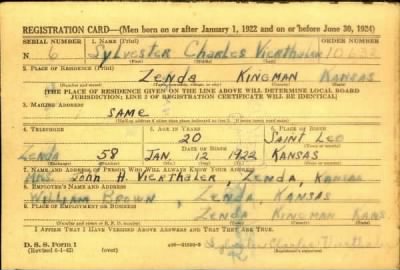 REGISTRATION CARD—(Men born on or after January 1, 1922 and on or before June 30, 1924)
SERIAL NUMBER 1. NAME (Print) ORDER NUMBER
N 6 Sylvester Charles Vierthaler 10632
2. PLACE OF RESIDENCE (Print)
Zenda KINGMAN KANSAS
(THE PLACE OF RESIDENCE GIVEN ON THE LINE ABOVE WILL DETERMINE LOCAL BOARD
JURISDICTION; LINE 2 OF REGISTRATION CERTIFICATE WILL BE IDENTICAL)
3. MAILING ADDRESS
SAME
4. TELEPHONE 5. AGE IN YEARS 6. PLACE OF BIRTH
20 SAINT LEO
DATE OF BIRTH
Zenda 58 JAN. 12 1922 KANSAS
7. NAME AND ADDRESS OF PERSON WHO WILL ALWAYS KNOW YOUR ADDRESS
MRS. John H. VIERTHALER, Zenda, KANSAS
8. EMPLOYER'S NAME AND ADDRESS
WILLIAM BROWN, Zenda, KANSAS
9. PLACE OF EMPLOYMENT OR BUSINESS
Zenda KINGMAN KANS
I AFFIRM THAT I HAVE VERIFIED ABOVE ANSWERS AND THAT THEY ARE TRUE.
D. S. S. Form 1 (over) Sylvester Charles Vierthaler